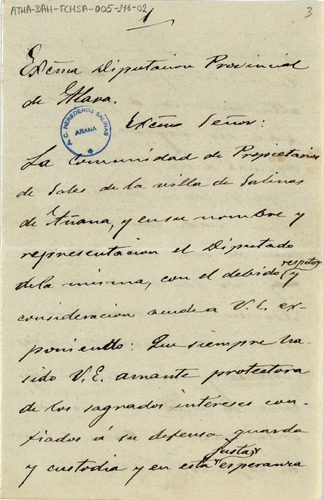 ATHA-DAH-FCHSA-005-216-02
1
3
Exc̃ma Diputacion Provincial
de Alava.
A.C. HEREDEROS SALINAS
AÑANA
Exc̃mo Señor:
La Comunidad de Propietarios
de Sales de la villa de Salinas
de Añana, y en su nombre y
representacion el Diputado
de la misma, con el debido respeto y
consideracion acude a V.E. ex-
poniendo: Que siempre ha
sido V.E. amante protectora
de los sagrados intereses con-
fiados á su defensa guarda
y custodia y en esta justa esperanza